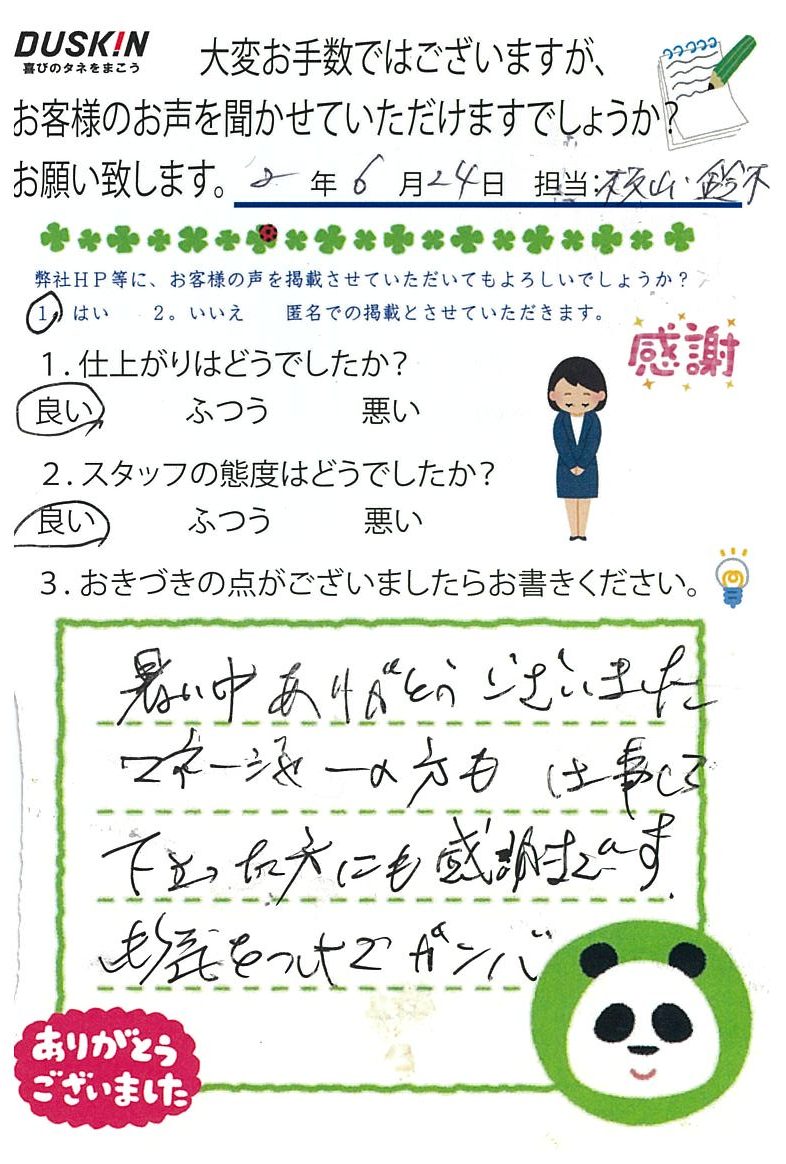 DUSKIN
喜びのタネをまこう
大変お手数ではございますが、
お客様のお声を聞かせていただけますでしょうか?
お願い致します。 2 年 6 月 24 日 担当: 山・鈴木
弊社HP等に、お客様の声を掲載させていただいてもよろしいでしょうか?
1。はい 2。いいえ 匿名での掲載とさせていただきます。
感謝
1.仕上がりはどうでしたか?
良い ふつう 悪い
2.スタッフの態度はどうでしたか?
良い ふつう 悪い
3.おきづきの点がございましたらお書きください。
暑い中ありがとうございました
マネージャーの方も 仕事して
下さった方にも感謝です。
お気をつけて ガンバ
ありがとう
ございました